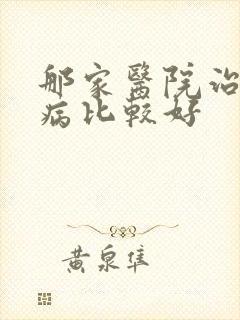 那家醫院治
病比較好
黄泉隼